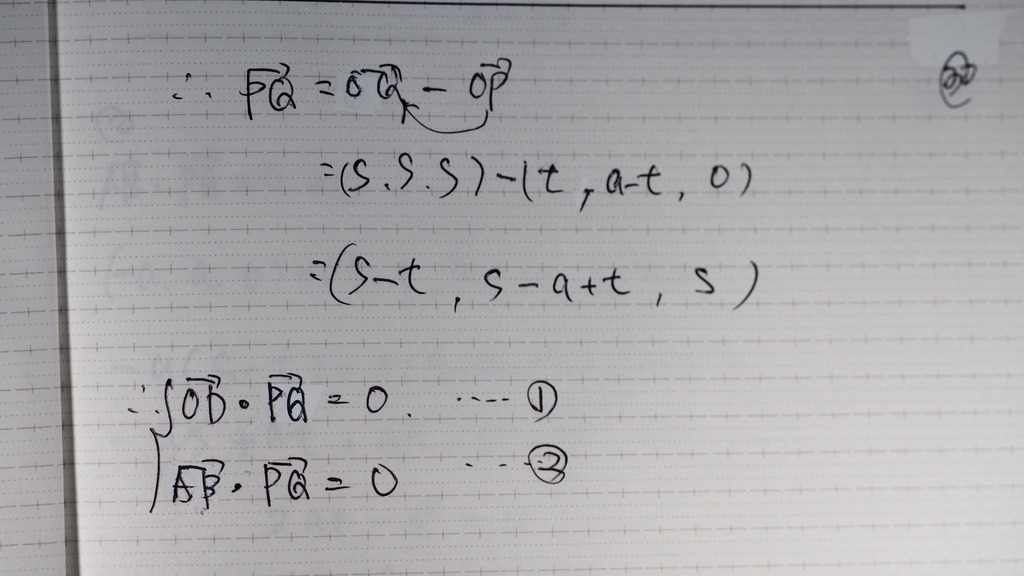 ∴ PQ→ = OQ→ − OP→
=(S.S.S)−(t, a−t, 0)
=(S−t, S−a+t, S)
∴ { OD→・PQ→ = 0. ‥‥ ①
AB→・PQ→ = 0 ‥‥ ②